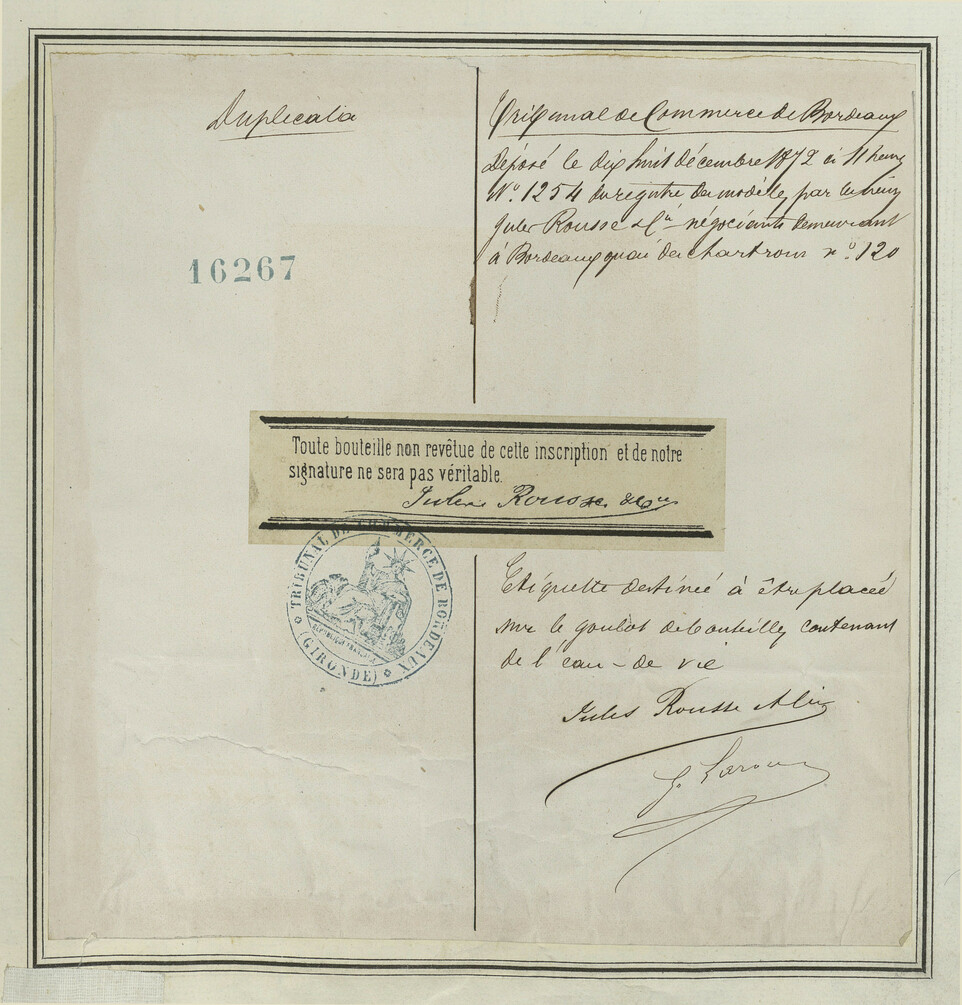 Duplicata
16267
Tribunal de Commerce de Bordeaux
Déposé le dix huit décembre 1872 à 11 heures
N.º 1254 du registre des modèles par les sieurs
Jules Rousse & Cie négociants demeurant
à Bordeaux quai des chartrons nº 120
Toute bouteille non revêtue de cette inscription et de notre
signature ne sera pas véritable.
Jules Rousse & Cie
TRIBUNAL DE COMMERCE DE BORDEAUX
(GIRONDE)
Etiquette destinée à être placée
sur le goulot de bouteilles contenant
de l'eau-de vie
Jules Rousse